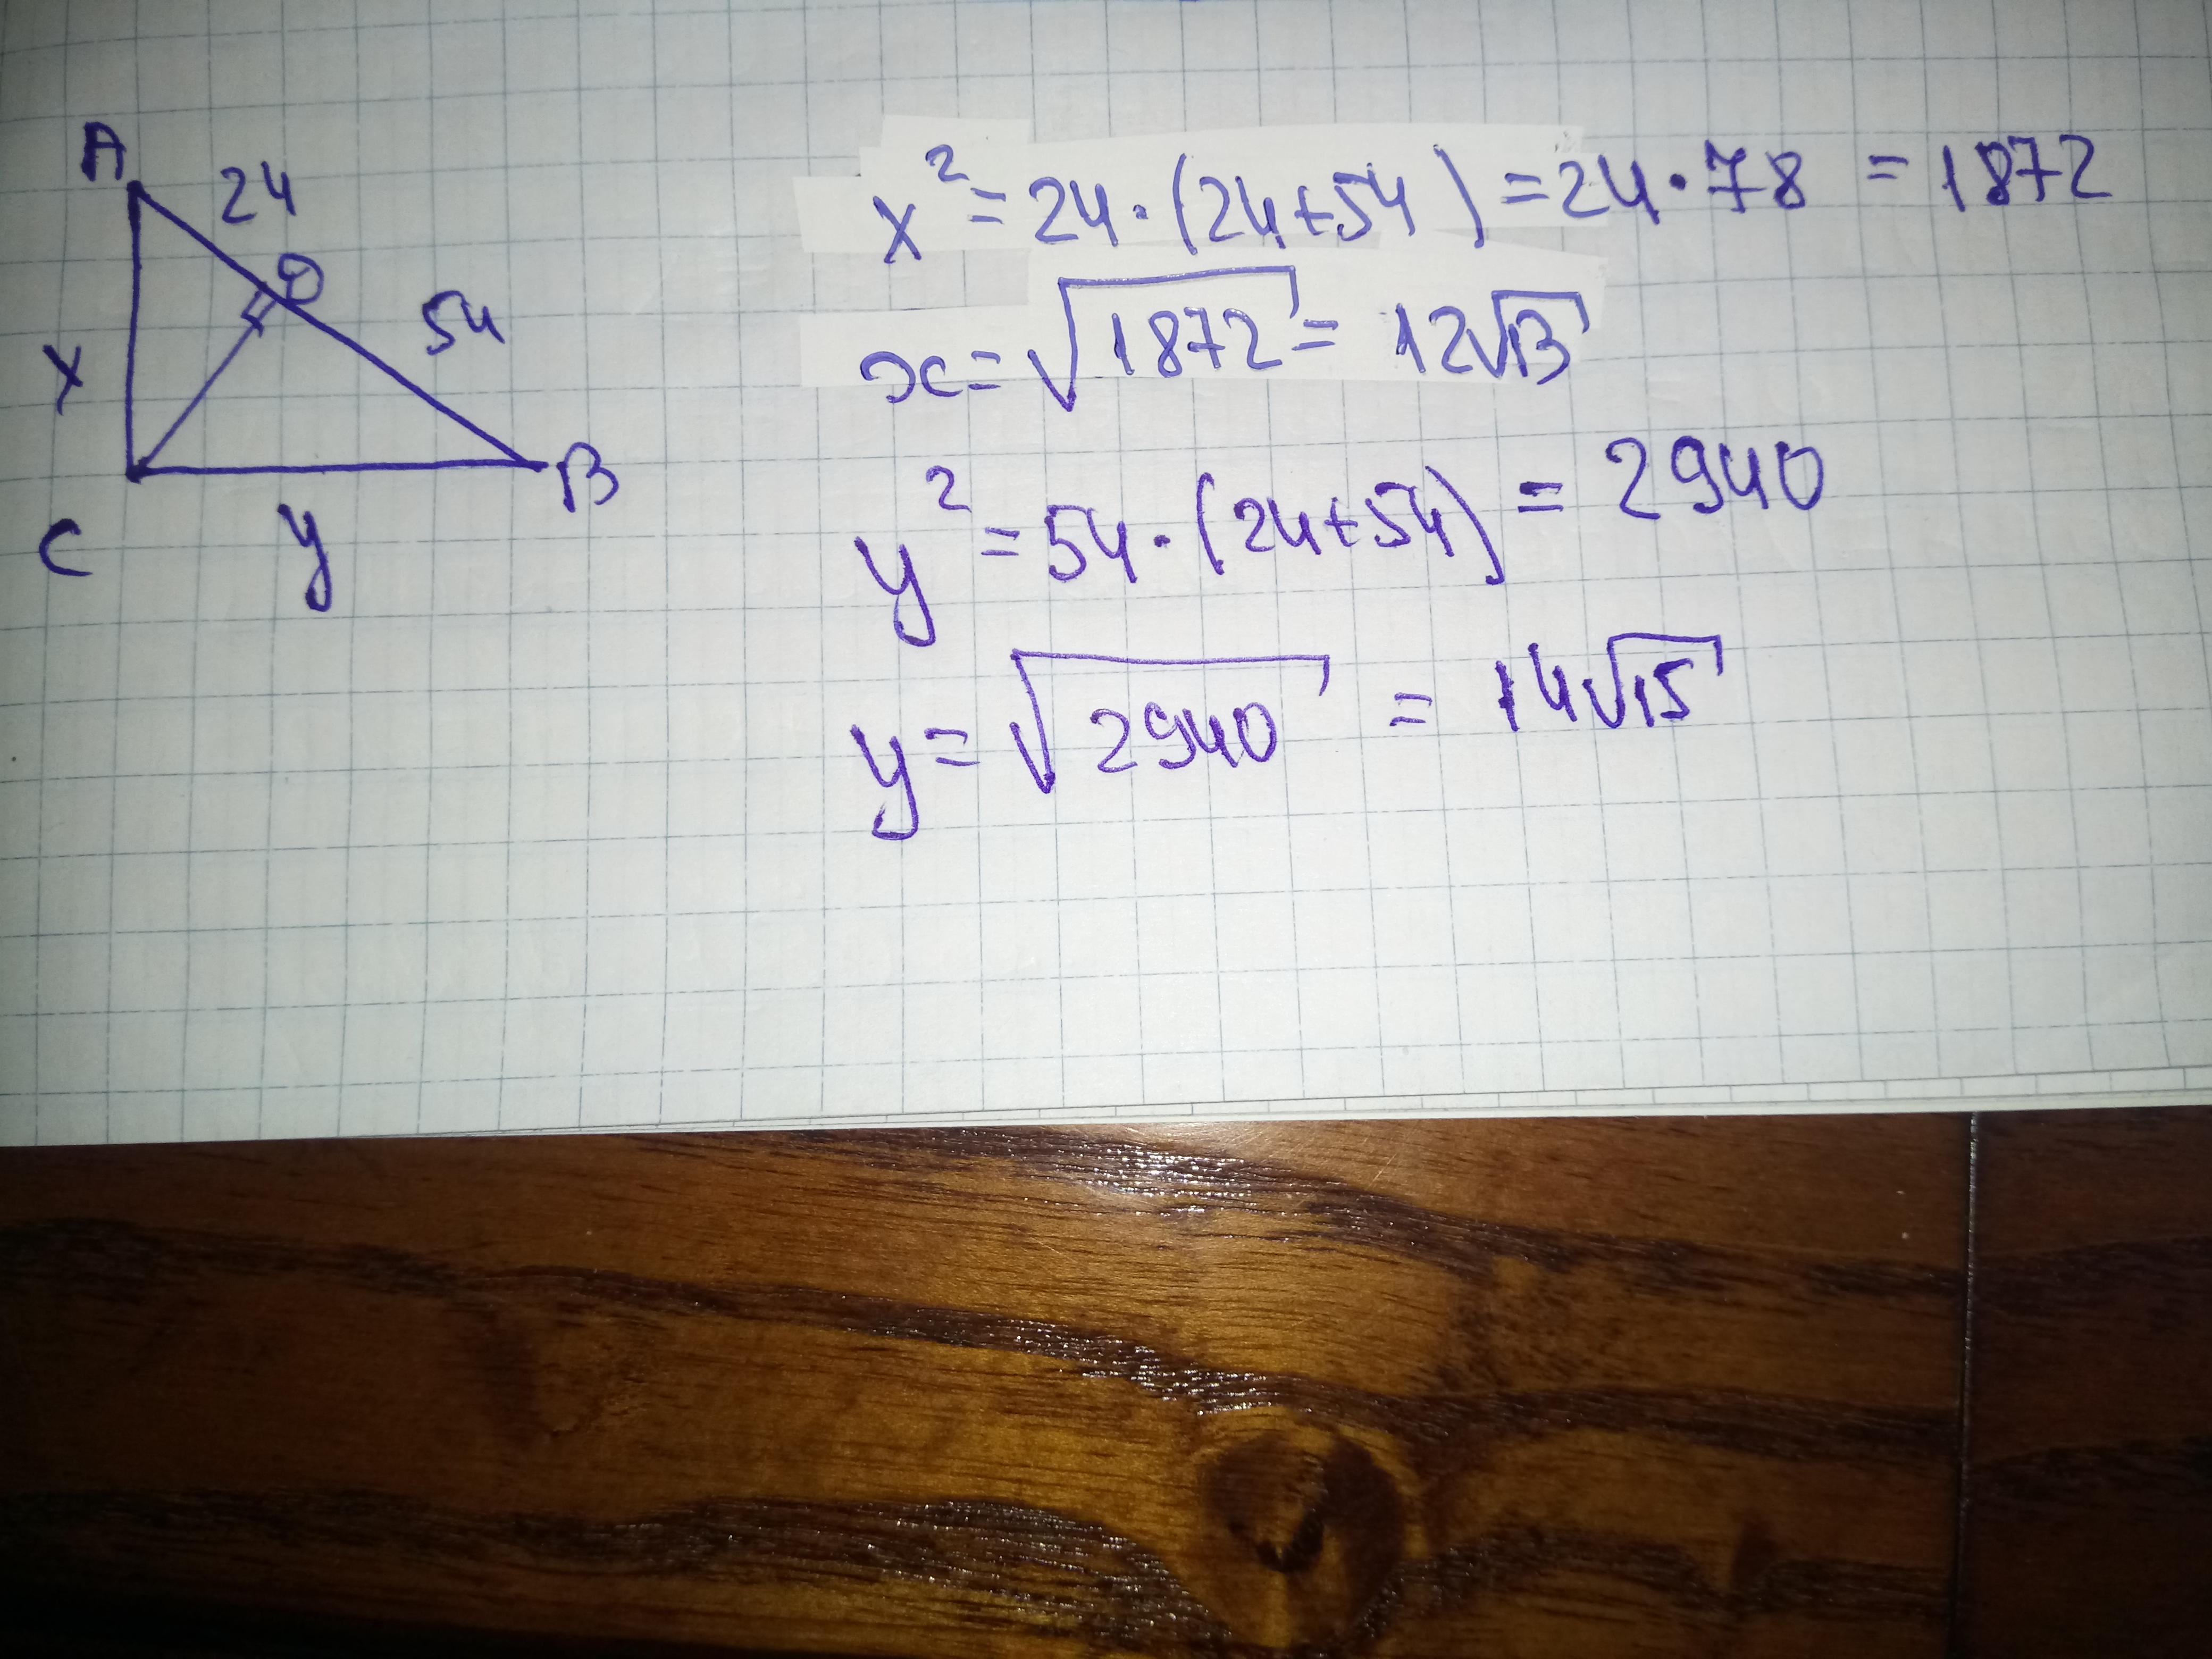 A
24
D
54
x
B
C
y
x² = 24·(24+54) = 24·78 = 1872
x = √1872 = 12√13
y² = 54·(24+54) = 2940
y = √2940 = 14√15